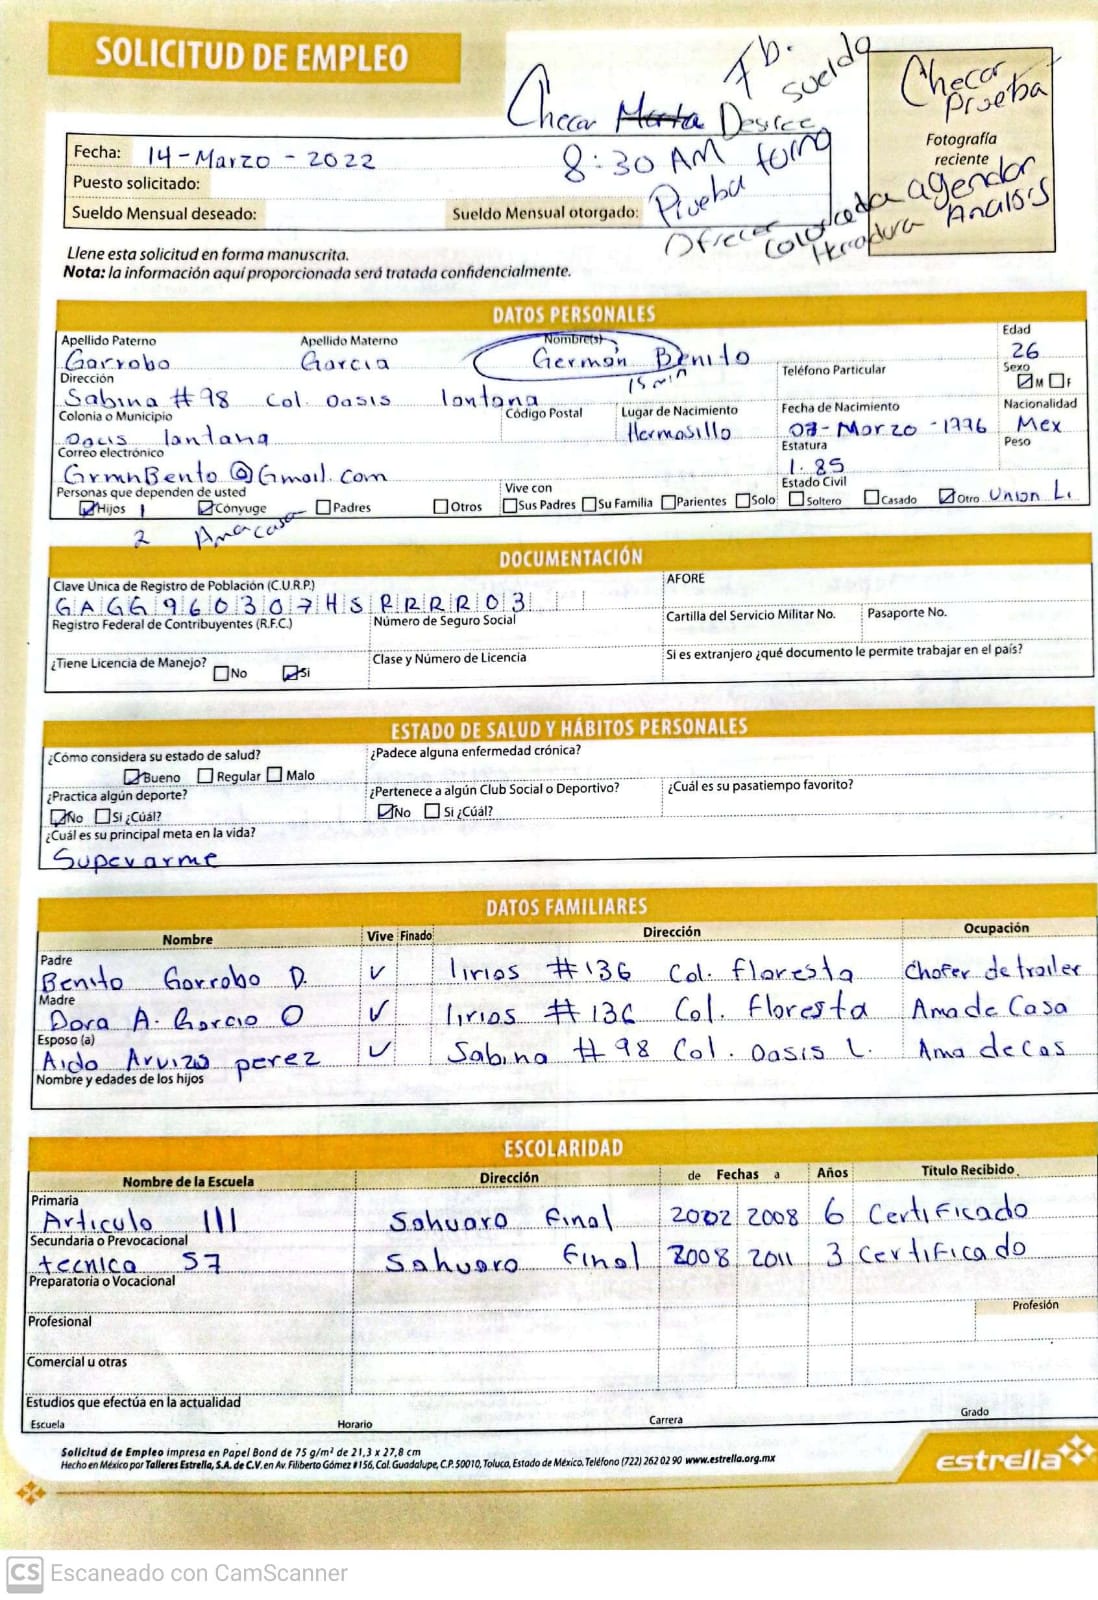 SOLICITUD DE EMPLEO
Fb.
sueldo
Checar Marta Desiree
8:30 AM
Prueba torno
Ofrecer colorceada
Herradura
Checar
Prueba
Fotografía
reciente
agendar
Analisis
Fecha: 14-Marzo-2022
Puesto solicitado:
Sueldo Mensual deseado: Sueldo Mensual otorgado:
Llene esta solicitud en forma manuscrita.
Nota: la información aquí proporcionada será tratada confidencialmente.
DATOS PERSONALES
Apellido Paterno Apellido Materno Nombre(s) Edad
Garrobo Garcia Germán Benito 26
15 min
Dirección Teléfono Particular Sexo
Sabina #98 Col. Oasis lantana M F
Colonia o Municipio Código Postal Lugar de Nacimiento Fecha de Nacimiento Nacionalidad
Oacis lantana Hermosillo 07-Marzo-1996 Mex
Correo electrónico Estatura Peso
GrmnBento@Gmail.com 1.85
Personas que dependen de usted Vive con Estado Civil
Hijos 1 Cónyuge Padres Otros Sus Padres Su Familia Parientes Solo Soltero Casado Otro Union L.
2 Ama casa
DOCUMENTACIÓN
Clave Única de Registro de Población (C.U.R.P.) AFORE
GAGG960307HSRRRR03
Registro Federal de Contribuyentes (R.F.C.) Número de Seguro Social Cartilla del Servicio Militar No. Pasaporte No.
¿Tiene Licencia de Manejo? No Si Clase y Número de Licencia Si es extranjero ¿qué documento le permite trabajar en el país?
ESTADO DE SALUD Y HÁBITOS PERSONALES
¿Cómo considera su estado de salud? ¿Padece alguna enfermedad crónica?
Bueno Regular Malo
¿Practica algún deporte? ¿Pertenece a algún Club Social o Deportivo? ¿Cuál es su pasatiempo favorito?
No Si ¿Cúál? No Si ¿Cúál?
¿Cuál es su principal meta en la vida?
Superarme
DATOS FAMILIARES
Nombre Vive Finado Dirección Ocupación
Padre
Benito Garrobo D. lirios #136 Col. floresta Chofer de trailer
Madre
Dora A. Garcia O lirios #136 Col. Floresta Ama de Casa
Esposo (a)
Aida Arvizo perez Sabina #98 Col. Oasis L. Ama de Cas
Nombre y edades de los hijos
ESCOLARIDAD
Nombre de la Escuela Dirección de Fechas a Años Título Recibido
Primaria
Articulo III Sahuaro Final 2002 2008 6 Certificado
Secundaria o Prevocacional
tecnica 57 Sahuaro Final 2008 2011 3 Certificado
Preparatoria o Vocacional
Profesional Profesión
Comercial u otras
Estudios que efectúa en la actualidad
Escuela Horario Carrera Grado
Solicitud de Empleo impresa en Papel Bond de 75 g/m² de 21,3 x 27,8 cm
Hecho en México por Talleres Estrella, S.A. de C.V. en Av. Filiberto Gómez #156, Col. Guadalupe, C.P. 50010, Toluca, Estado de México. Teléfono (722) 262 02 90 www.estrella.org.mx
estrella
CS Escaneado con CamScanner